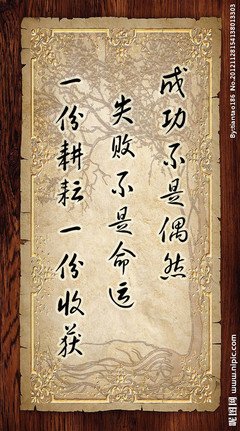 成功不是偶然
失败不是命运
一份耕耘一份收获
By:tiantao186 No.20121128154138013303
昵图网 www.nipic.com